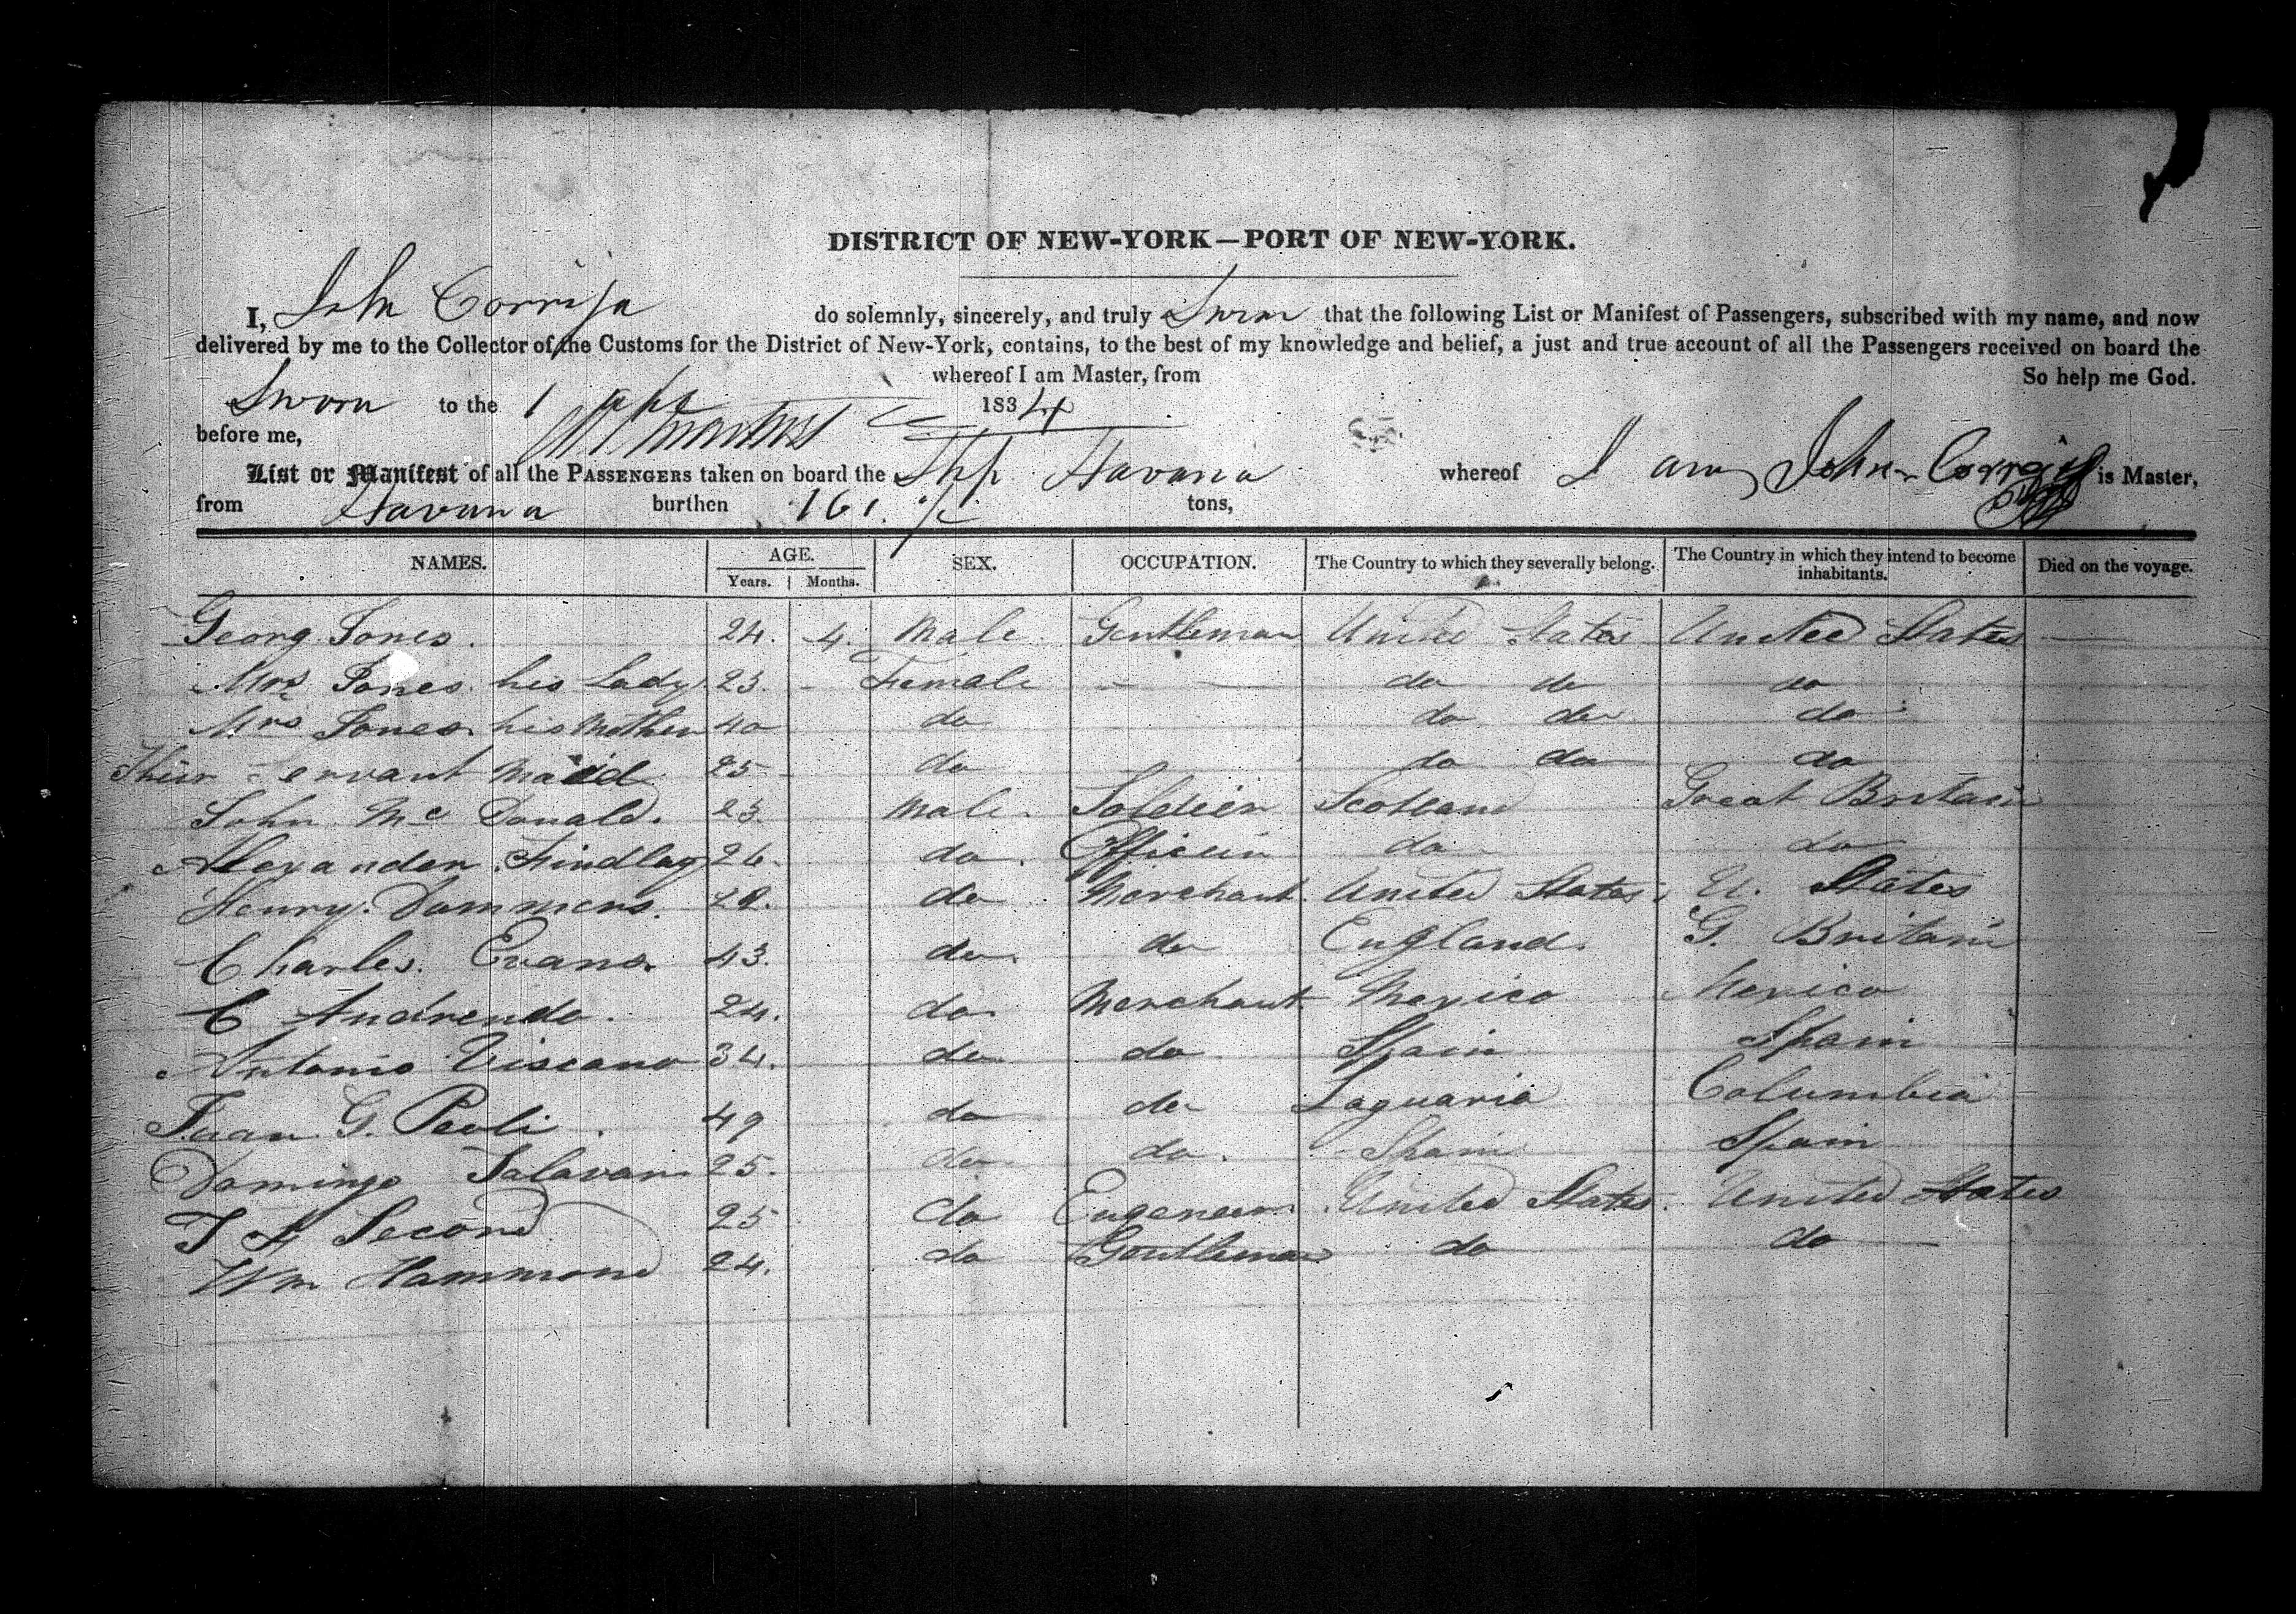 DISTRICT OF NEW-YORK—PORT OF NEW-YORK.
I, John Corrija do solemnly, sincerely, and truly Swear that the following List or Manifest of Passengers, subscribed with my name, and now
delivered by me to the Collector of the Customs for the District of New-York, contains, to the best of my knowledge and belief, a just and true account of all the Passengers received on board the
whereof I am Master, from So help me God.
Sworn to the 1 1834
before me,
List or Manifest of all the PASSENGERS taken on board the Shp Havana whereof I am John is Master,
from Havana burthen 161 tons,
NAMES. AGE. SEX. OCCUPATION. The Country to which they severally belong. The Country in which they intend to become inhabitants. Died on the voyage.
Years. Months.
Georg Jones. 24. 4. Male. Gentleman United States United States —
Mrs Jones his Lady 23. - Female - - do do do
Mrs Jones his Mother 40 do do do do
Their Servant Maid 25 do do do do
John Mc Donald. 23. Male. Soldier Scotland Great Britain
Alexander Findlay 26. do. Officier do do
Henry Dammers. 28. do Merchant. United States. U. States
Charles. Evans. 43. do. do England. G. Britain
C Andrende. 24. do. Merchant Mexico Mexico
Antonio Viscano 34. do do Spain Spain
Juan G. Peoli. 49 do do Laguaria Columbia
Domingo Salavan 25. do do. Spain Spain
T A Second 25 do Engeneer. United States. United States
Wm Hammond 24. do Gentleman do do